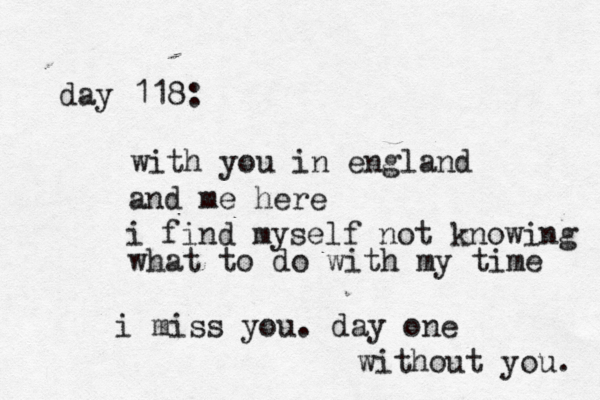 day 118:
with you in england
and me here
i find myself not knowing
what to do with my time
i miss you. day one
without you.